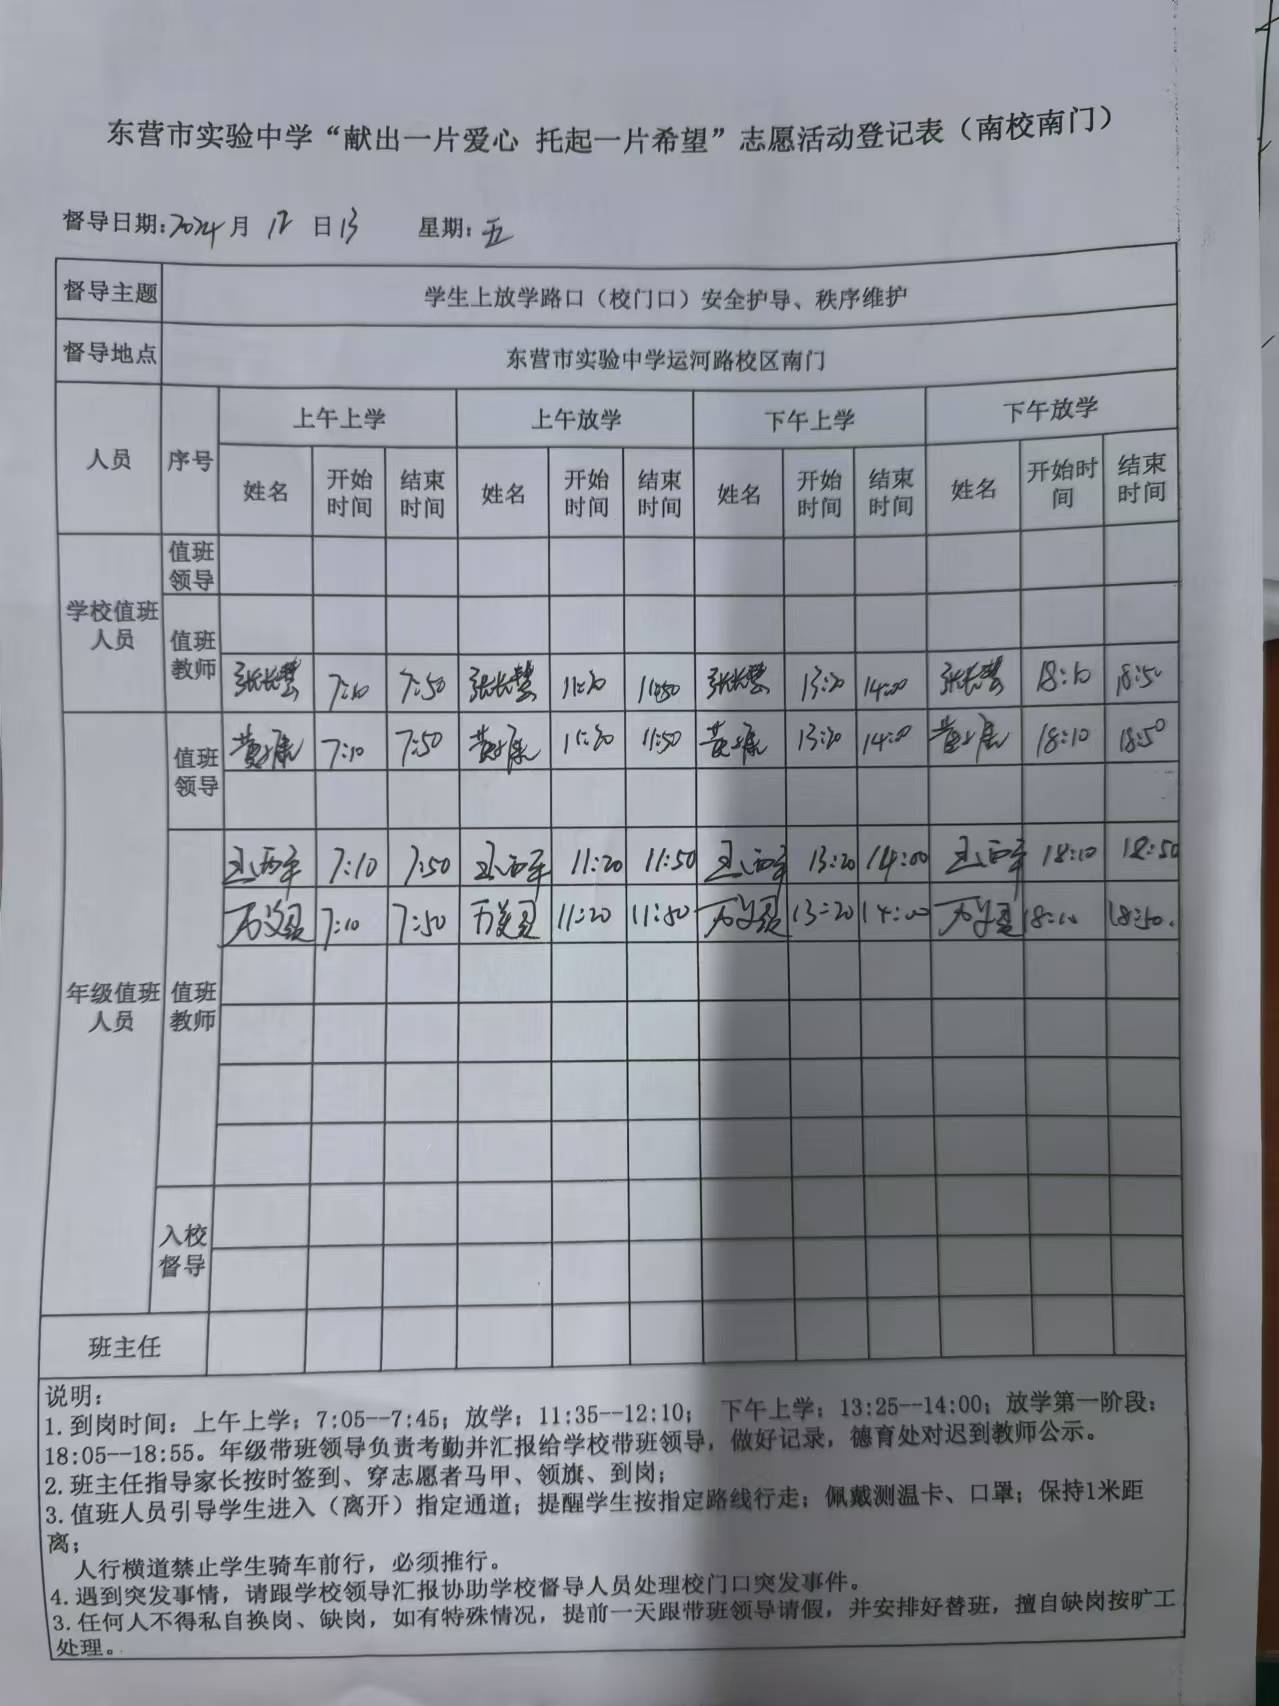 东营市实验中学“献出一片爱心 托起一片希望”志愿活动登记表（南校南门）
督导日期:2024月 12 日13 星期:五
督导主题 学生上放学路口（校门口）安全护导、秩序维护
督导地点 东营市实验中学运河路校区南门
人员 序号 上午上学 上午放学 下午上学 下午放学
姓名 开始时间 结束时间 姓名 开始时间 结束时间 姓名 开始时间 结束时间 姓名 开始时间 结束时间
学校值班人员 值班领导
值班教师 张长慧 7:10 7:50 张长慧 11:20 11:50 张长慧 13:20 14:00 张长慧 18:10 18:50
年级值班人员 值班领导 7:10 7:50 11:20 11:50 13:20 14:00 18:10 18:50
值班教师 7:10 7:50 11:20 11:50 13:20 14:00 18:10 18:50
7:10 7:50 11:20 11:50 13:20 14:00 18:10 18:50.
入校督导
班主任
说明：
1.到岗时间：上午上学；7:05--7:45；放学；11:35--12:10； 下午上学；13:25--14:00；放学第一阶段：
18:05--18:55。年级带班领导负责考勤并汇报给学校带班领导，做好记录，德育处对迟到教师公示。
2.班主任指导家长按时签到、穿志愿者马甲、领旗、到岗；
3.值班人员引导学生进入（离开）指定通道；提醒学生按指定路线行走；佩戴测温卡、口罩；保持1米距
离；
人行横道禁止学生骑车前行，必须推行。
4.遇到突发事情，请跟学校领导汇报协助学校督导人员处理校门口突发事件。
3.任何人不得私自换岗、缺岗，如有特殊情况，提前一天跟带班领导请假，并安排好替班，擅自缺岗按旷工
处理。